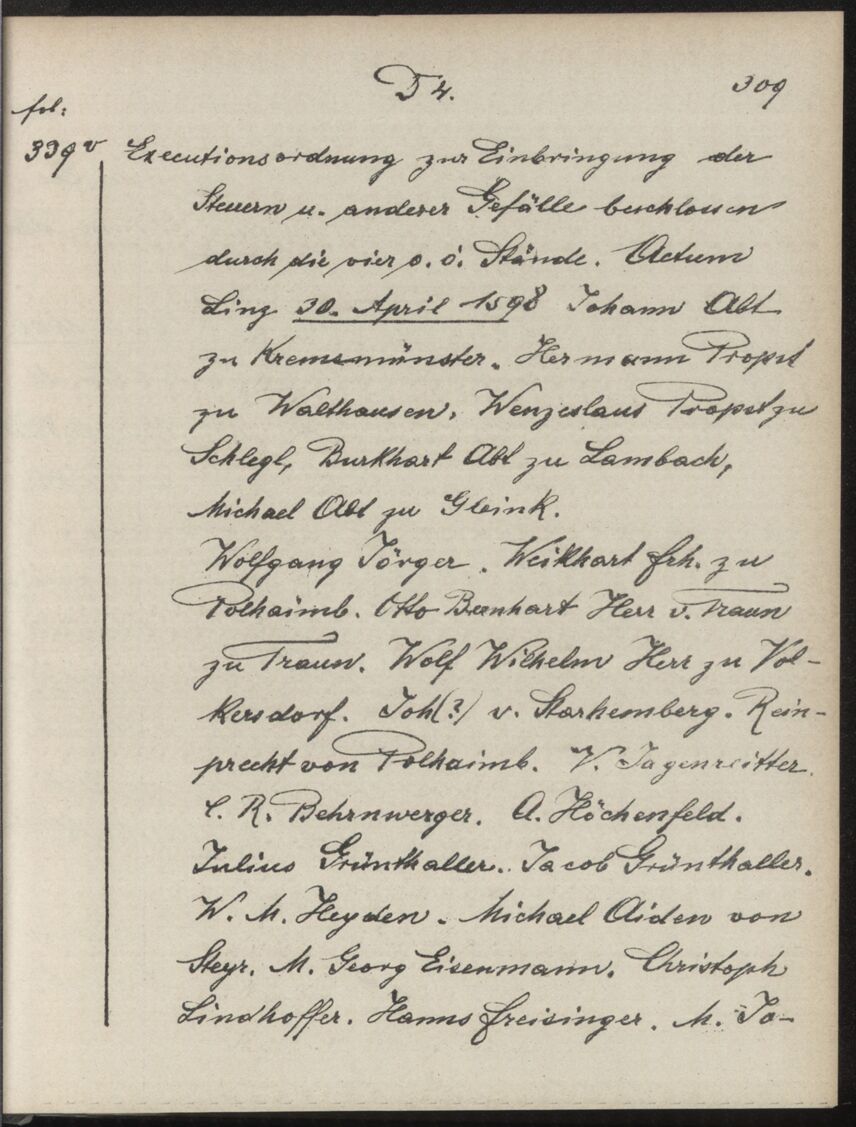 D 4. 309
fol:
339 v Executionsordnung zur Einbringung der
Steuern u. anderer Gefälle beschlossen
durch die vier o. ö. Stände. Actum
Linz 30. April 1598 Johann Abt
zu Kremsmünster. Hermann Propst
zu Walthausen. Wenzeslaus Propst zu
Schlegl, Burkhart Abt zu Lambach,
Michael Abt zu Gleink.
Wolfgang Jörger. Weikhart frh. zu
Polhaimb. Otto Bernhart Herr v. Traun
zu Traun. Wolf Wilhelm Herr zu Vol-
kersdorf. Joh(?) v. Starhemberg. Rein-
precht von Polhaimb. V. Jagenreitter.
C. R. Behrnwerger. A. Höchenfeld.
Julius Grünthaller. Jacob Grünthaller.
W. M. Heyden. Michael Aiden von
Steyr. M. Georg Eisenmann. Christoph
Lindhoffer. Hanns Freisinger. M. Jo-